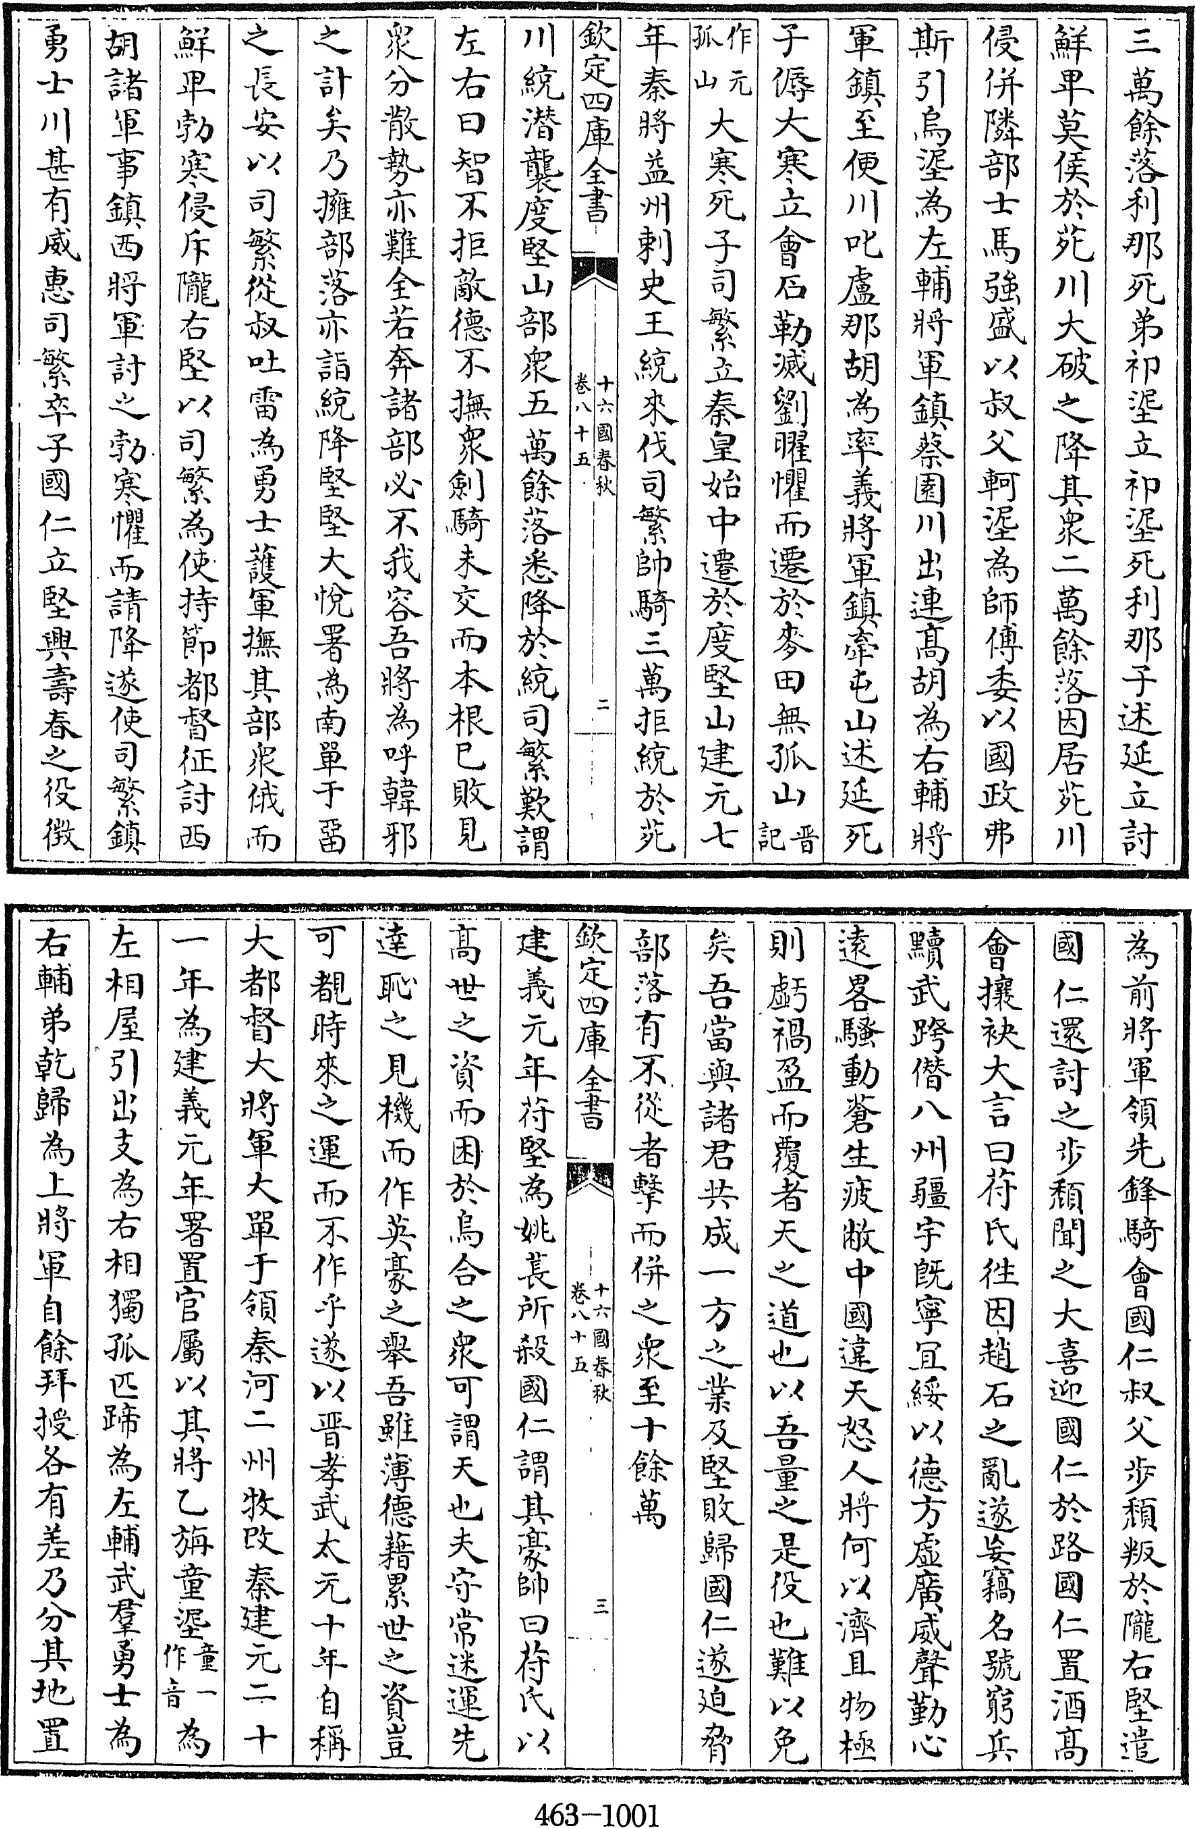 三萬餘落利那死弟祁埿立祁埿死利那子述延立討
鮮卑莫侯於苑川大破之降其衆二萬餘落因居苑川
侵併隣部士馬強盛以叔父軻埿為師傅委以國政弗
斯引烏埿為左輔將軍鎮蔡園川出連髙胡為右輔將
軍鎮至便川叱盧那胡為率義將軍鎮牽屯山述延死
子傉大寒立會石勒滅劉曜懼而遷於麥田無孤山晋記
作元孤山大寒死子司繁立秦皇始中遷於度堅山建元七
年秦將益州刺史王統來伐司繁帥騎三萬拒統於苑
欽定四庫全書
十六國春秋
卷八十五
二
川統潜襲度堅山部衆五萬餘落悉降於統司繁歎謂
左右曰智不拒敵德不撫衆劍騎未交而本根已敗見
衆分散勢亦難全若奔諸部必不我容吾將為呼韓邪
之計矣乃擁部落亦詣統降堅堅大悅署為南單于留
之長安以司繁從叔吐雷為勇士護軍撫其部衆俄而
鮮卑勃寒侵斥隴右堅以司繁為使持節都督征討西
胡諸軍事鎮西將軍討之勃寒懼而請降遂使司繁鎮
勇士川甚有威惠司繁卒子國仁立堅興壽春之役徴
為前將軍領先鋒騎會國仁叔父步頽叛於隴右堅遣
國仁還討之步頽聞之大喜迎國仁於路國仁置酒髙
會攘袂大言曰苻氏往因趙石之亂遂妄竊名號窮兵
黷武跨僭八州疆宇既寧宜綏以德方虛廣威聲勤心
遠畧騷動蒼生疲敝中國違天怒人將何以濟且物極
則虧禍盈而覆者天之道也以吾量之是役也難以免
矣吾當與諸君共成一方之業及堅敗歸國仁遂迫脅
部落有不從者擊而併之衆至十餘萬
欽定四庫全書
十六國春秋
卷八十五
三
建義元年苻堅為姚萇所殺國仁謂其豪帥曰苻氏以
髙世之資而困於烏合之衆可謂天也夫守常迷運先
達恥之見機而作英豪之舉吾雖薄德藉累世之資豈
可覩時來之運而不作乎遂以晋孝武太元十年自稱
大都督大將軍大單于領秦河二州牧改秦建元二十
一年為建義元年署置官屬以其將乙旃童埿童一作音為
左相屋引出支為右相獨孤匹蹄為左輔武羣勇士為
右輔弟乾歸為上將軍自餘拜授各有差乃分其地置
463-1001